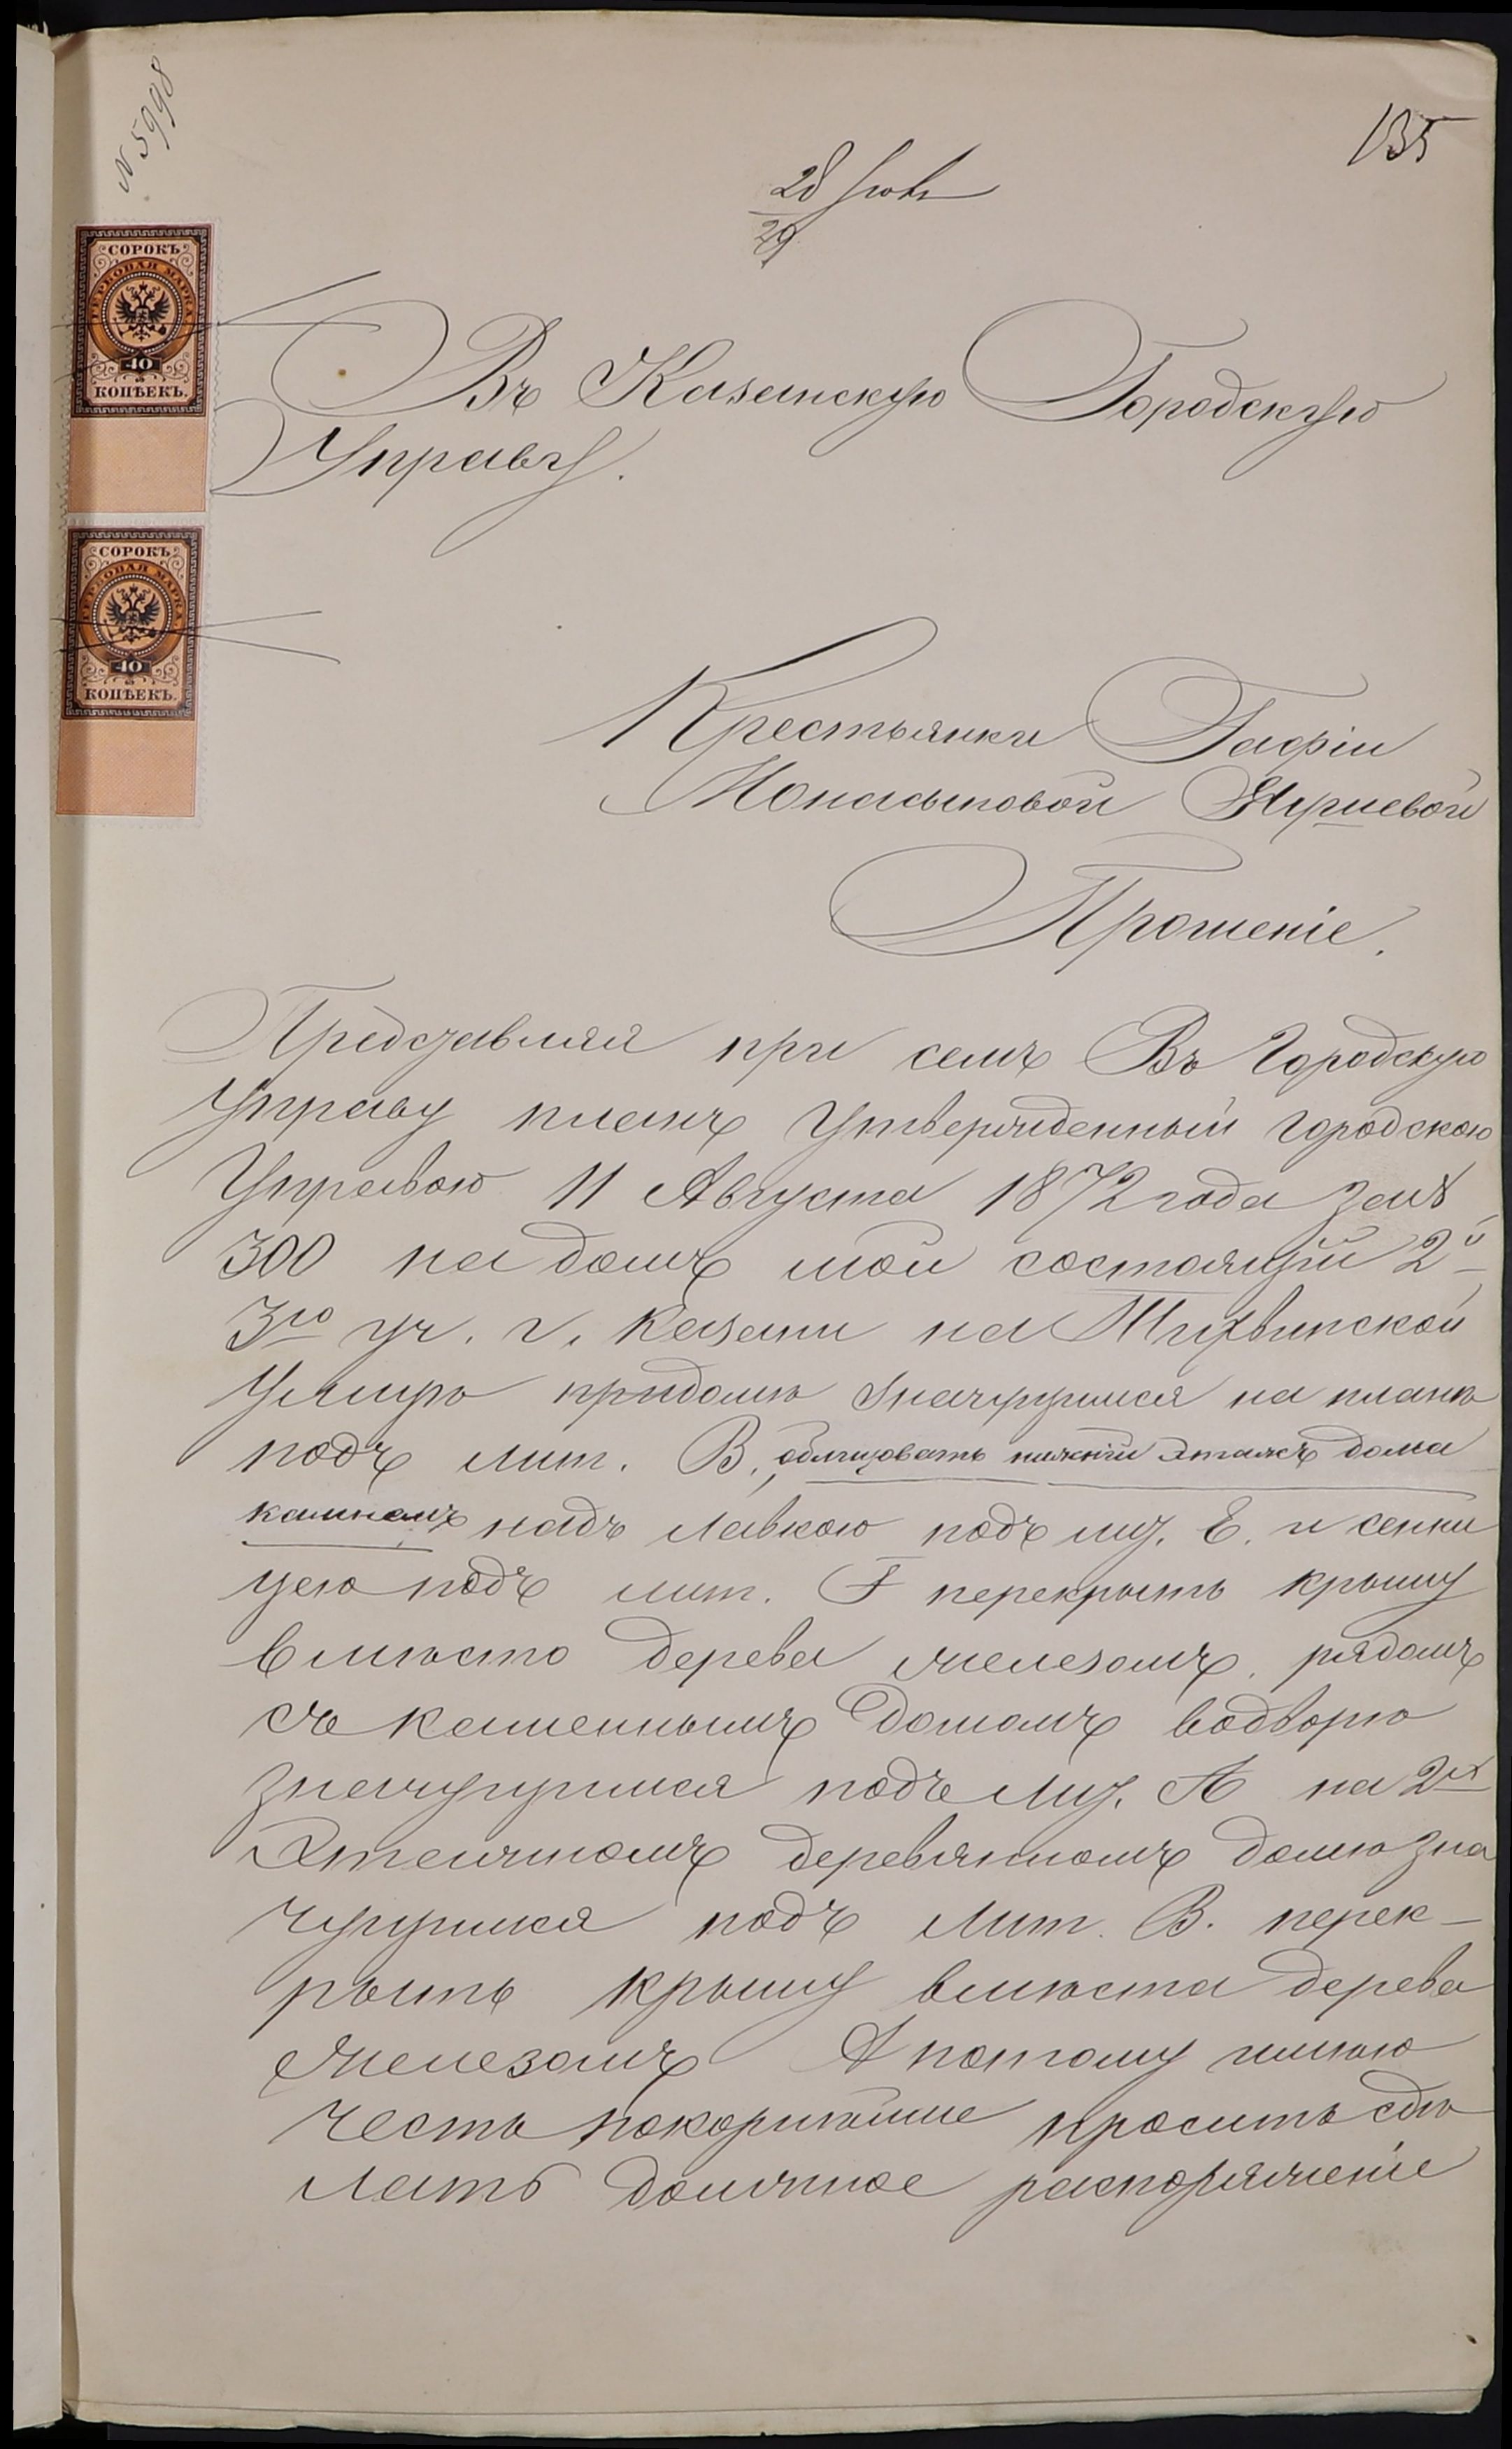 N 5998
135
28 Іюля
29
СОРОКЪ
ГЕРБОВАЯ МАРКА
40
КОПѢЕКЪ.
Въ Казанскую Городскую
Управу.
СОРОКЪ
ГЕРБОВАЯ МАРКА
40
КОПѢЕКЪ.
Крестьянки Гафіи
Прошеніе.
Представляя при семъ Въ Городскую
Управу планъ Утвержденный городскою
Управою 11 Августа 1872 года за №
300 на домъ мой состоящій 2й
3го уч. г. Казани на Тихвинской
Улицѣ придомѣ значущимся на планѣ
подъ лит. В., облицовать нижній этажъ дома
камнемъ надъ лавкою подъ лит. Е. и сенни
цею подъ лит. F перекрыть крышу
вмѣсто дерева железомъ. рядомъ
съ каменнымъ домомъ водворѣ
значущимся подъ лит. А на 2х
Этажномъ деревянномъ домѣ зна
чущимся подъ лит. В. перек-
рыть крышу вмѣста дерева
железомъ А потому имѣю
честь покорнѣйше просить сдѣ
лать должное распоряженіе